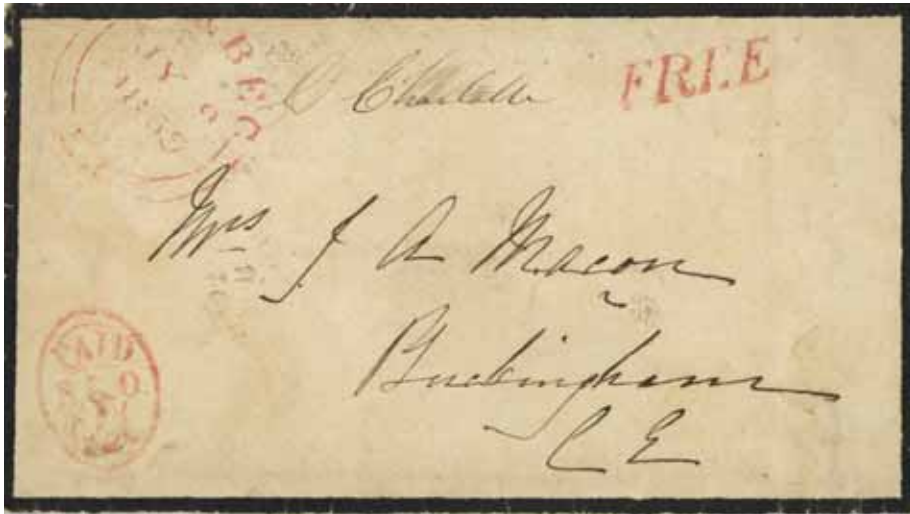 BEC
FREE
Mrs J A Macon
Buckingham
C E
PAID